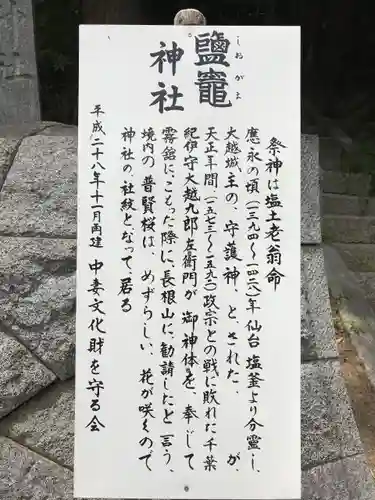 鹽竈
しおがま
神社
祭神は塩土老翁命
應永の頃(一三九四〜一四二八)年仙台塩釜より分霊し、
大越城主の、守護神、とされた。が、
天正年間、(一五七三〜一五九二)政宗との戦に敗れた千葉
紀伊守大越九郎左衛門が御神体を、奉じて
霧舘に、こもった際に、長根山に、勧請したと言う、
境内の普賢桜は、めずらしい、花が咲くので
神社の、社紋と、なって、居る
平成二十八年十一月再建 中妻文化財を守る会